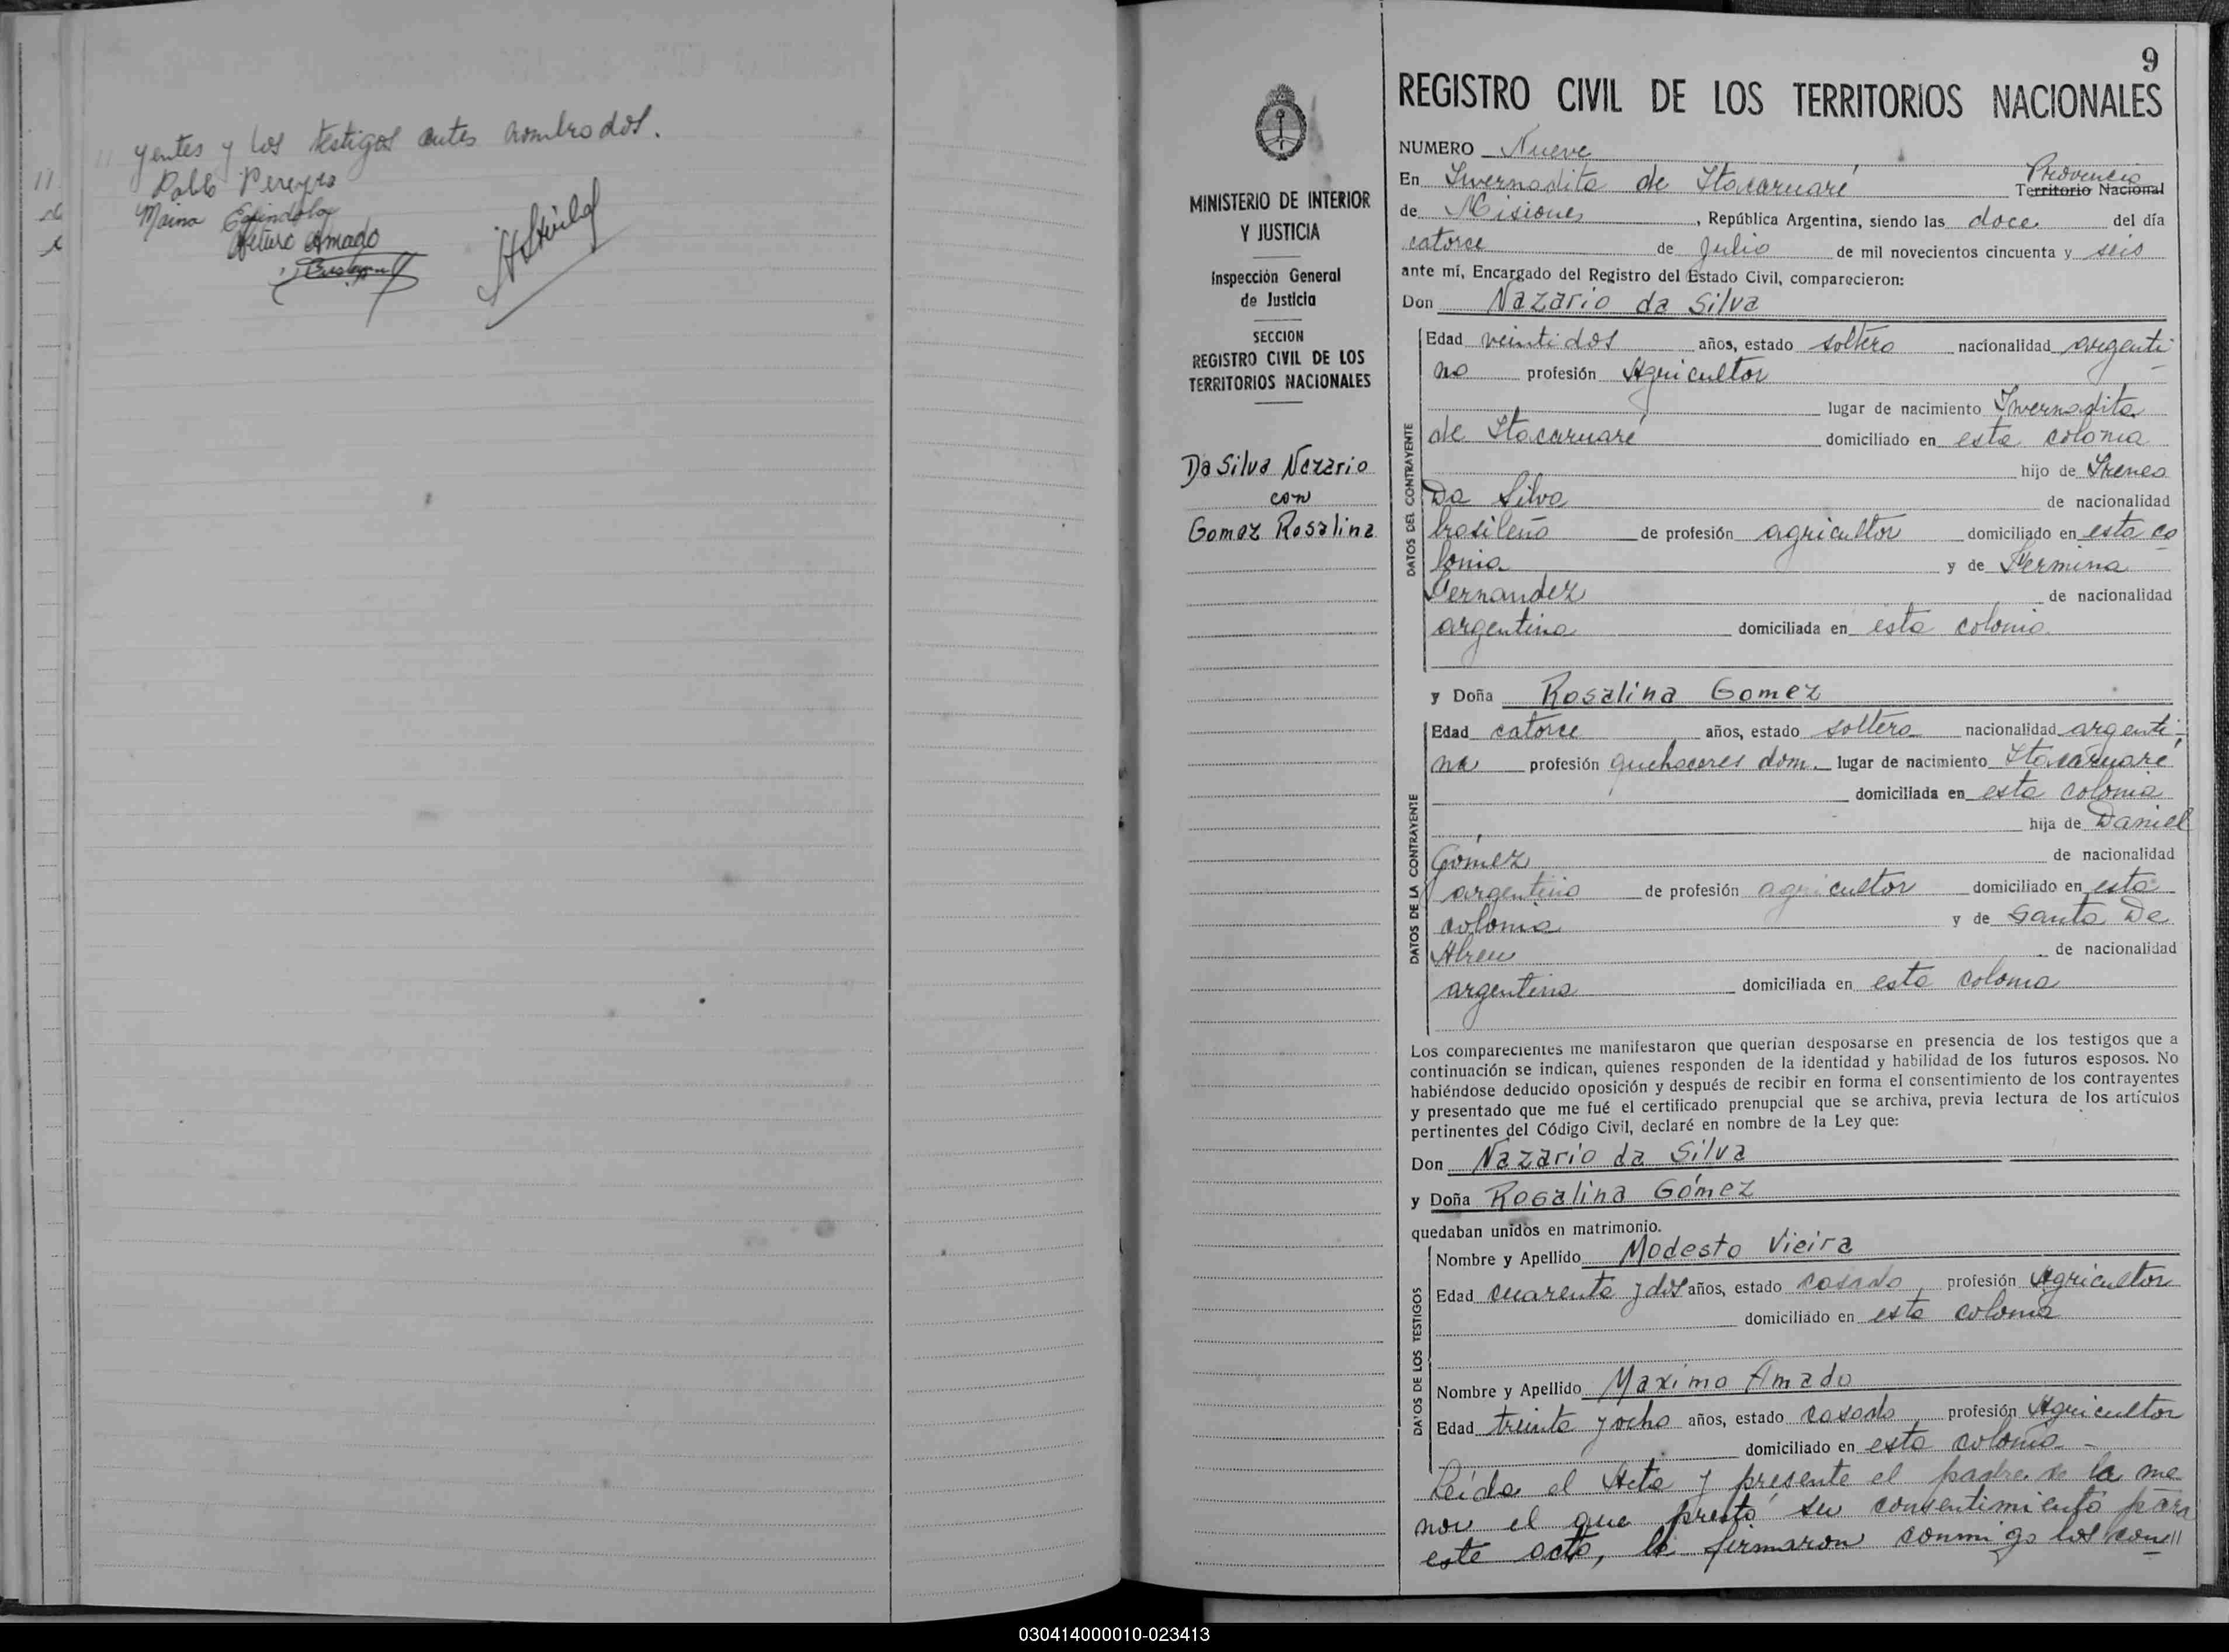 yentes y los testigos antes nombrados.
Pablo Pereyra
Maina Espindola
Arturo Amado
9
REGISTRO CIVIL DE LOS TERRITORIOS NACIONALES
MINISTERIO DE INTERIOR
Y JUSTICIA
Inspección General
de Justicia
SECCION
REGISTRO CIVIL DE LOS
TERRITORIOS NACIONALES
Da Silva Nazario
con
Gomez Rosalina
NUMERO Nueve
Provincia
En Invernadita de Itacaruaré Territorio Nacional
de Misiones, República Argentina, siendo las doce del día
catorce de Julio de mil novecientos cincuenta y seis
ante mí, Encargado del Registro del Estado Civil, comparecieron:
Don Nazario da Silva
DATOS DEL CONTRAYENTE
Edad veintidos años, estado soltero nacionalidad argenti-
no profesión Agricultor
lugar de nacimiento Invernadita
de Itacaruaré domiciliado en esta colonia
hijo de Ireneo
Da Silva de nacionalidad
brasileño de profesión agricultor domiciliado en esta co
lonia y de Fermina
Fernandez de nacionalidad
argentina domiciliada en esta colonia
y Doña Rosalina Gomez
DATOS DE LA CONTRAYENTE
Edad catorce años, estado soltera nacionalidad argenti-
na profesión quehaceres dom. lugar de nacimiento Itacaruaré
domiciliada en esta colonia
hija de Daniel
Gómez de nacionalidad
argentino de profesión agricultor domiciliado en esta
colonia y de Santa De
Abreu de nacionalidad
argentina domiciliada en esta colonia
Los comparecientes me manifestaron que querían desposarse en presencia de los testigos que a
continuación se indican, quienes responden de la identidad y habilidad de los futuros esposos. No
habiéndose deducido oposición y después de recibir en forma el consentimiento de los contrayentes
y presentado que me fué el certificado prenupcial que se archiva, previa lectura de los artículos
pertinentes del Código Civil, declaré en nombre de la Ley que:
Don Nazario da Silva
y Doña Rosalina Gómez
quedaban unidos en matrimonio.
DATOS DE LOS TESTIGOS
Nombre y Apellido Modesto Vieira
Edad cuarenta y dos años, estado casado, profesión Agricultor
domiciliado en esta colonia
Nombre y Apellido Maximo Amado
Edad treinta y ocho años, estado casado profesión Agricultor
domiciliado en esta colonia -
Leída el Acta y presente el padre de la me
nor el que prestó su consentimiento para
este acto, la firmaron conmigo los con//
030414000010-023413